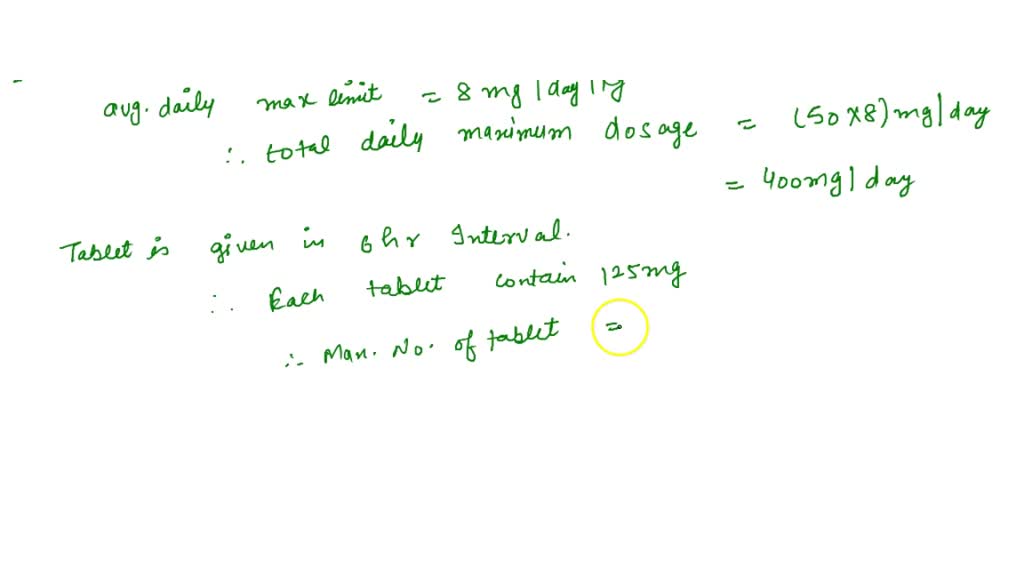 avg. daily max limit = 8 mg | day |
∴ total daily maximum dosage = (50 x 8) mg | day
= 400 mg | day
Tablet is given in 6 hr Interval.
∴ Each tablet contain 125 mg
∴ Max. No. of tablet =